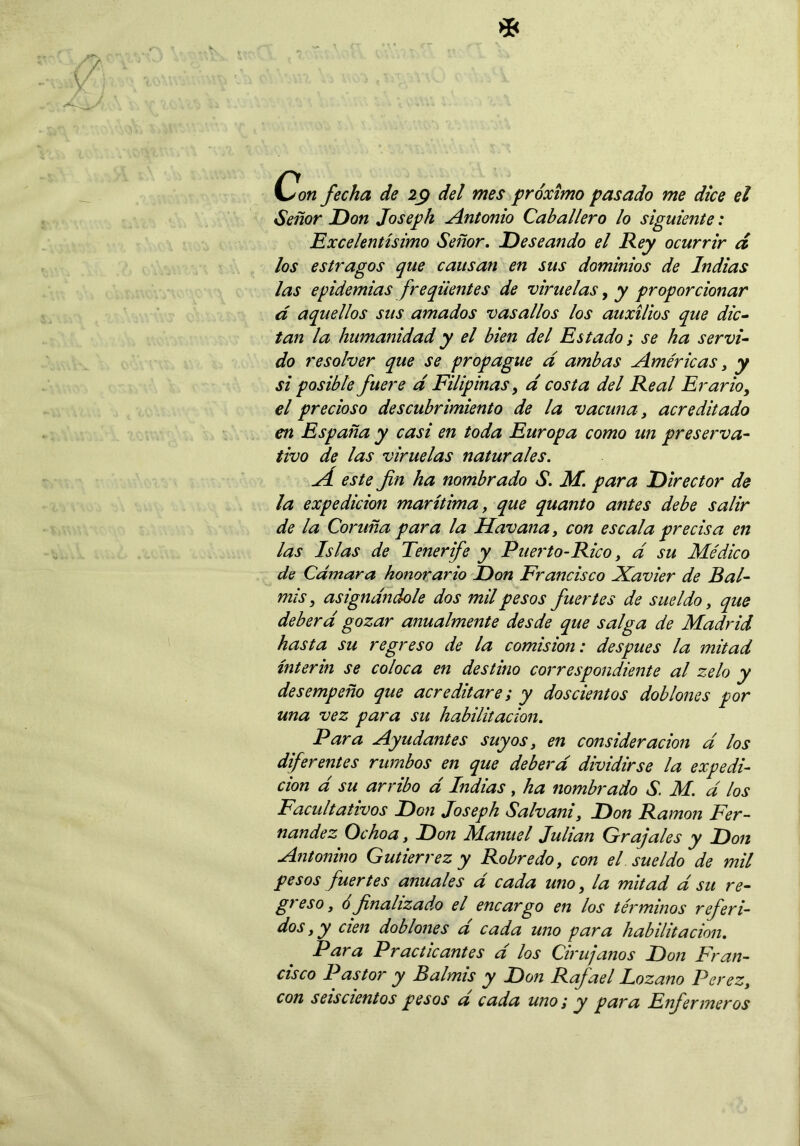 Con fecha de 29 del mes próxîmo pasado me dice el
Señor Don Joseph Antonio Caballero lo siguiente:
Excelentísimo Señor. Deseando el Rey ocurrir á
los estragos que causan en sus dominios de Indias
las epidemias freqüentes de viruelas, y proporcionar
á aquellos sus amados vasallos los auxîlios que dic-
tan la humanidad y el bien del Estado; se ha servi-
do resolver que se propague á ambas Américas, y
si posible fuere á Filipinas, á costa del Real Erario,
el precioso descubrimiento de la vacuna, acreditado
en España y casi en toda Europa como un preserva-
tivo de las viruelas naturales.
Á este fin ha nombrado S. M. para Director de
la expedicion marítima, que quanto antes debe salir
de la Coruña para la Havana, con escala precisa en
las Islas de Tenerife y Puerto-Rico, á su Médico
de Cámara honorario Don Francisco Xavier de Bal-
mis, asignándole dos mil pesos fuertes de sueldo, que
deberá gozar anualmente desde que salga de Madrid
hasta su regreso de la comision: despues la mitad
ínterin se coloca en destino correspondiente al zelo y
desempeño que acreditare; y doscientos doblones por
una vez para su habilitacion.
Para Ayudantes suyos, en consideracion á los
diferentes rumbos en que deberá dividirse la expedi-
cion á su arribo á Indias, ha nombrado S. M. á los
Facultativos Don Joseph Salvani, Don Ramon Fer-
nandez Ochoa, Don Manuel Julian Grajales y Don
Antonino Gutierrez y Robredo, con el sueldo de mil
pesos fuertes anuales á cada uno, la mitad á su re-
greso, ó finalizado el encargo en los términos referi-
dos, y cien doblones á cada uno para habilitacion.
Para Practicantes á los Cirujanos Don Fran-
cisco Pastor y Balmis y Don Rafael Lozano Perez,
con seiscientos pesos á cada uno; y para Enfermeros